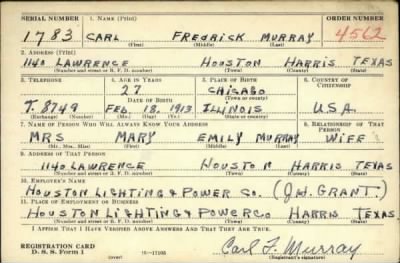 SERIAL NUMBER 1. NAME (Print) ORDER NUMBER
1783 CARL FREDRICK MURRAY 4562
(First) (Middle) (Last)
2. ADDRESS (Print)
1140 LAWRENCE HOUSTON HARRIS TEXAS
(Number and street or R. F. D. number) (Town) (County) (State)
3. TELEPHONE 4. AGE IN YEARS 5. PLACE OF BIRTH 6. COUNTRY OF CITIZENSHIP
27 CHICAGO
DATE OF BIRTH (Town or county)
T. 8749 FEB. 18, 1913 ILLINOIS U.S.A.
(Exchange) (Number) (Mo.) (Day) (Yr.) (State or country)
7. NAME OF PERSON WHO WILL ALWAYS KNOW YOUR ADDRESS 8. RELATIONSHIP OF THAT PERSON
MRS MARY EMILY MURRAY WIFE
(Mr., Mrs., Miss) (First) (Middle) (Last)
9. ADDRESS OF THAT PERSON
1140 LAWRENCE HOUSTON HARRIS TEXAS
(Number and street or R. F. D. number) (Town) (County) (State)
10. EMPLOYER'S NAME
HOUSTON LIGHTING & POWER CO. (J.W. GRANT.)
11. PLACE OF EMPLOYMENT OR BUSINESS
HOUSTON LIGHTING & POWER CO HARRIS TEXAS
(Number and street or R. F. D. number) (Town) (County) (State)
I AFFIRM THAT I HAVE VERIFIED ABOVE ANSWERS AND THAT THEY ARE TRUE.
REGISTRATION CARD
D. S. S. Form 1 (over) 16—17105 Carl F. Murray
(Registrant's signature)